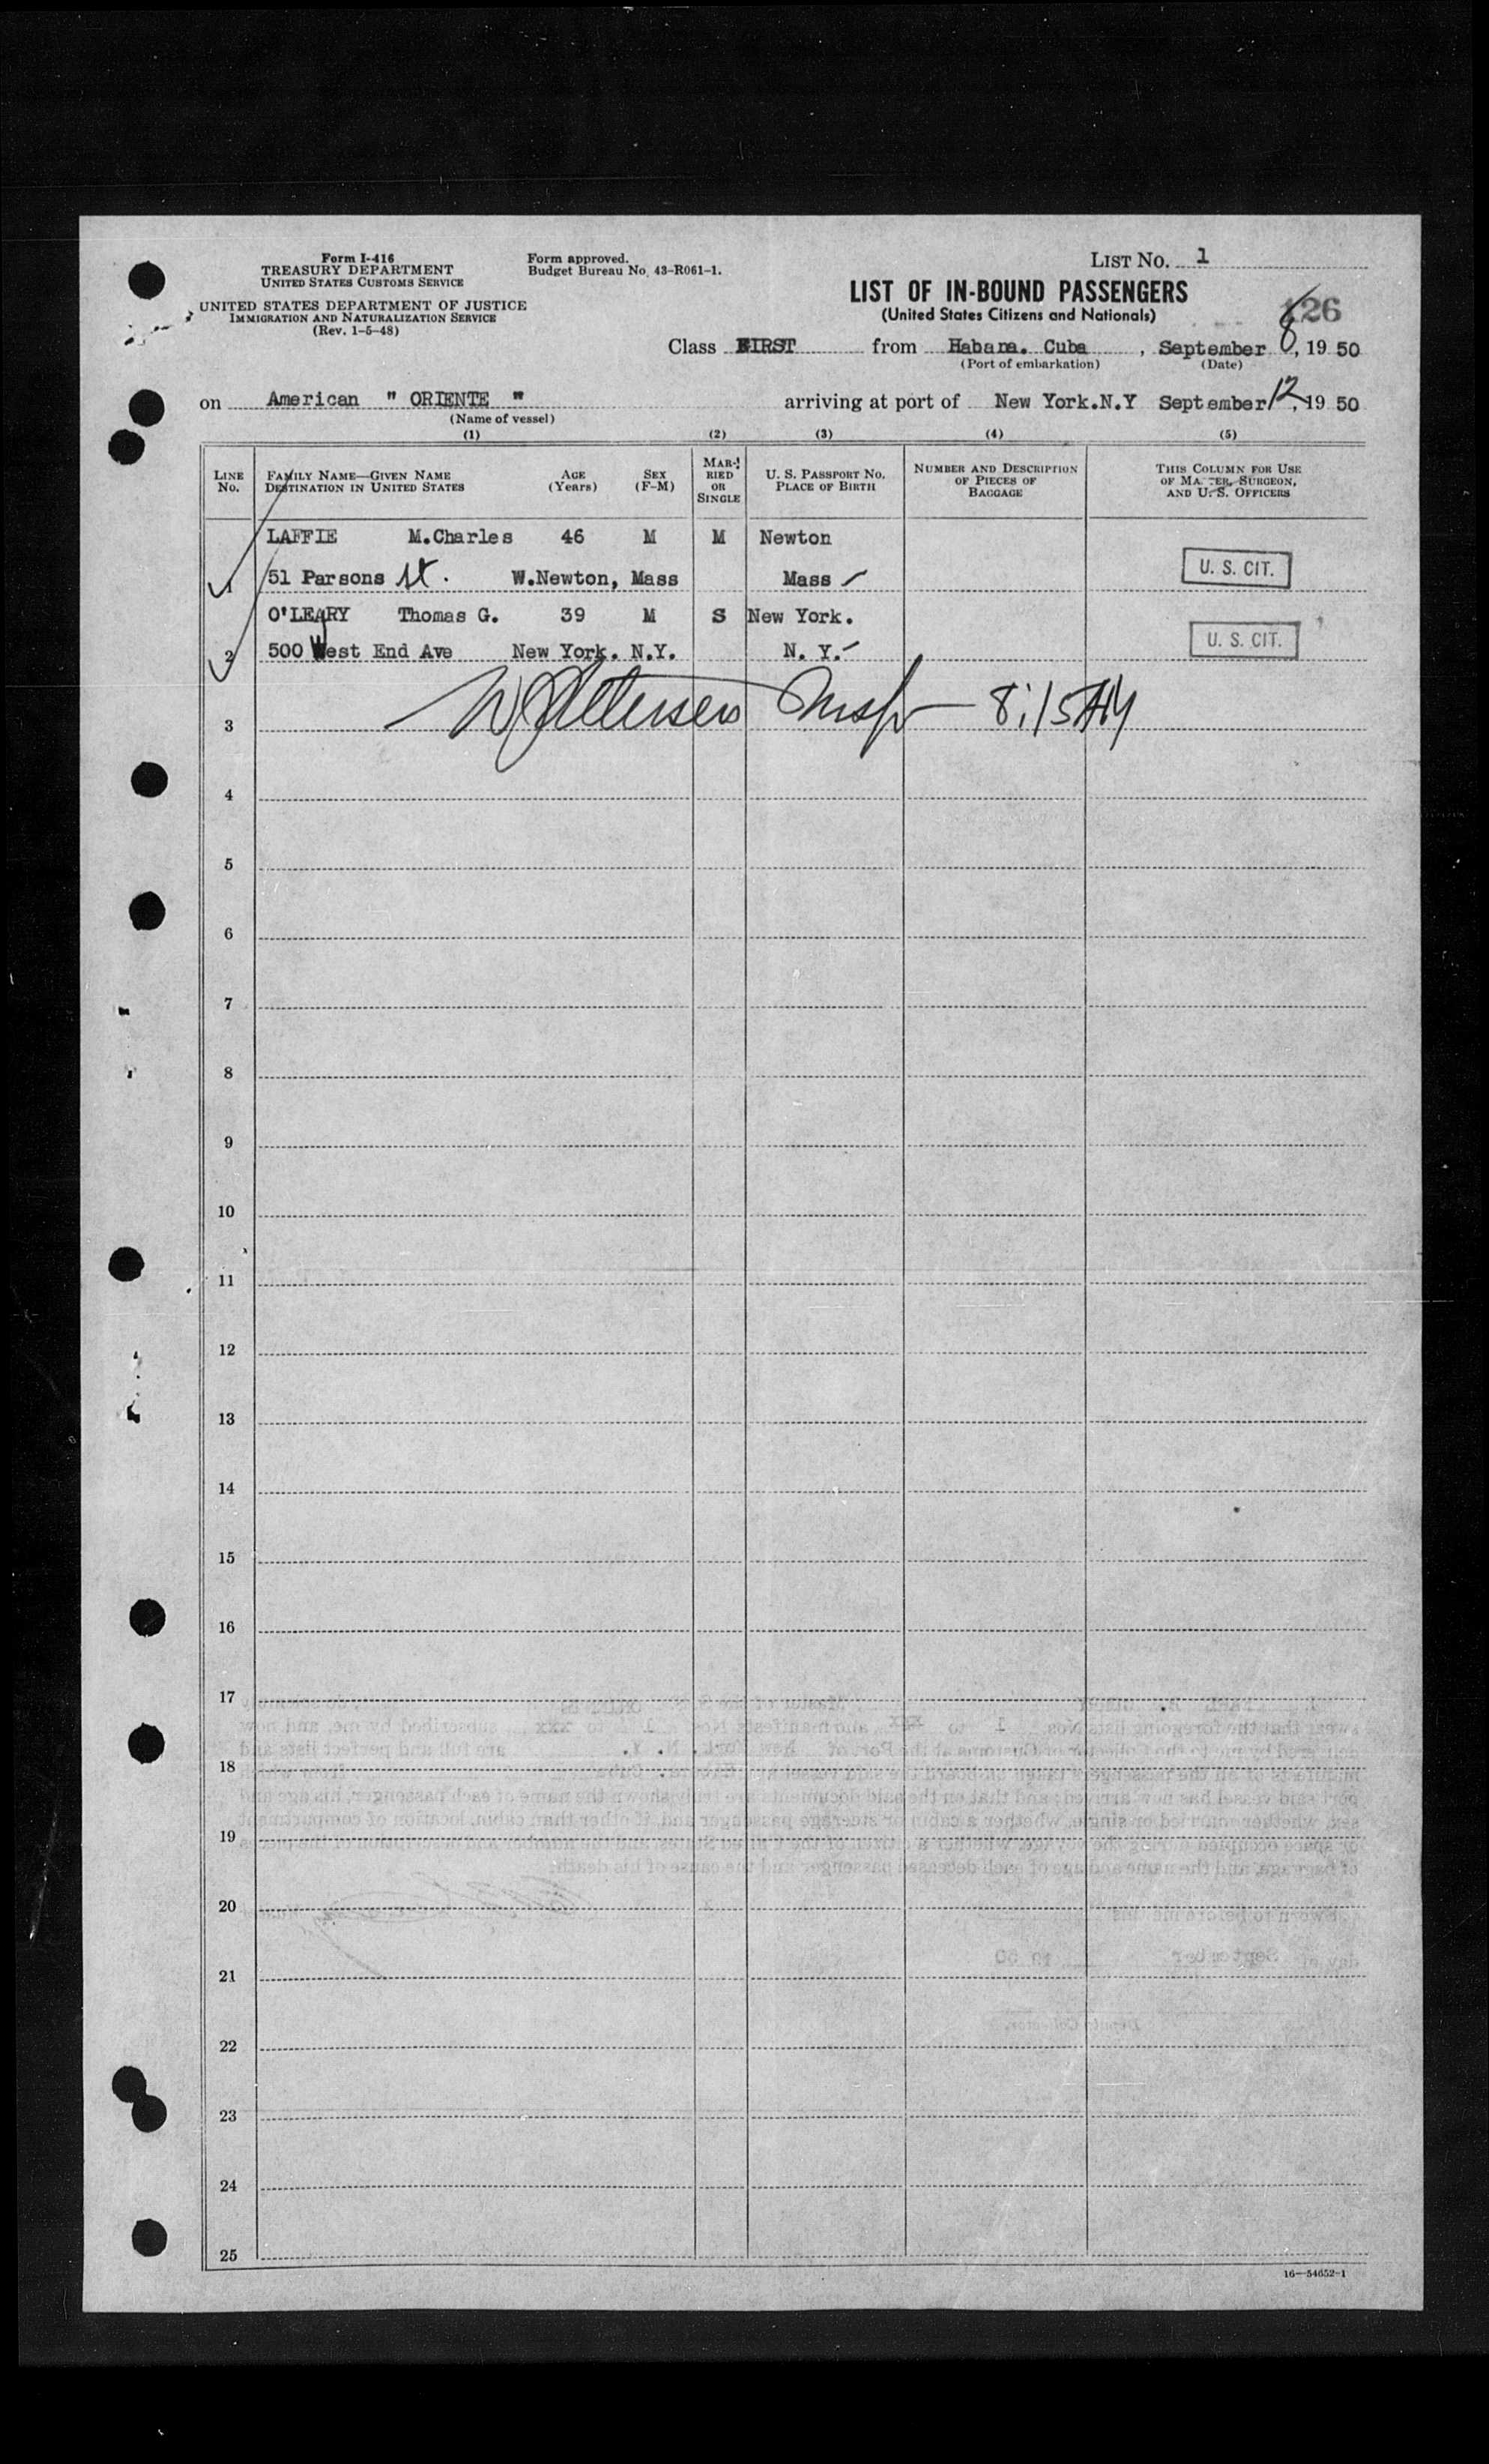 Form I-416
TREASURY DEPARTMENT
UNITED STATES CUSTOMS SERVICE
UNITED STATES DEPARTMENT OF JUSTICE
IMMIGRATION AND NATURALIZATION SERVICE
(Rev. 1-5-48)
Form approved.
Budget Bureau No. 43-R061-1.
LIST NO. 1
LIST OF IN-BOUND PASSENGERS
(United States Citizens and Nationals)
126
Class FIRST from Habana. Cuba, September 8, 1950
(Port of embarkation) (Date)
on American " ORIENTE " arriving at port of New York.N.Y September 12, 1950
(Name of vessel)
(1) (2) (3) (4) (5)
LINE NO.
FAMILY NAME—GIVEN NAME
DESTINATION IN UNITED STATES
AGE (Years)
SEX (F-M)
MARRIED OR SINGLE
U. S. PASSPORT NO.
PLACE OF BIRTH
NUMBER AND DESCRIPTION OF PIECES OF BAGGAGE
THIS COLUMN FOR USE OF MASTER, SURGEON, AND U. S. OFFICERS
LAFFIE M.Charles 46 M M Newton
1 51 Parsons St. W.Newton, Mass Mass U. S. CIT.
O'LEARY Thomas G. 39 M S New York.
2 500 West End Ave New York. N.Y. N. Y. U. S. CIT.
3
4
5
6
7
8
9
10
11
12
13
14
15
16
17
18
19
20
21
22
23
24
25
16—54652-1